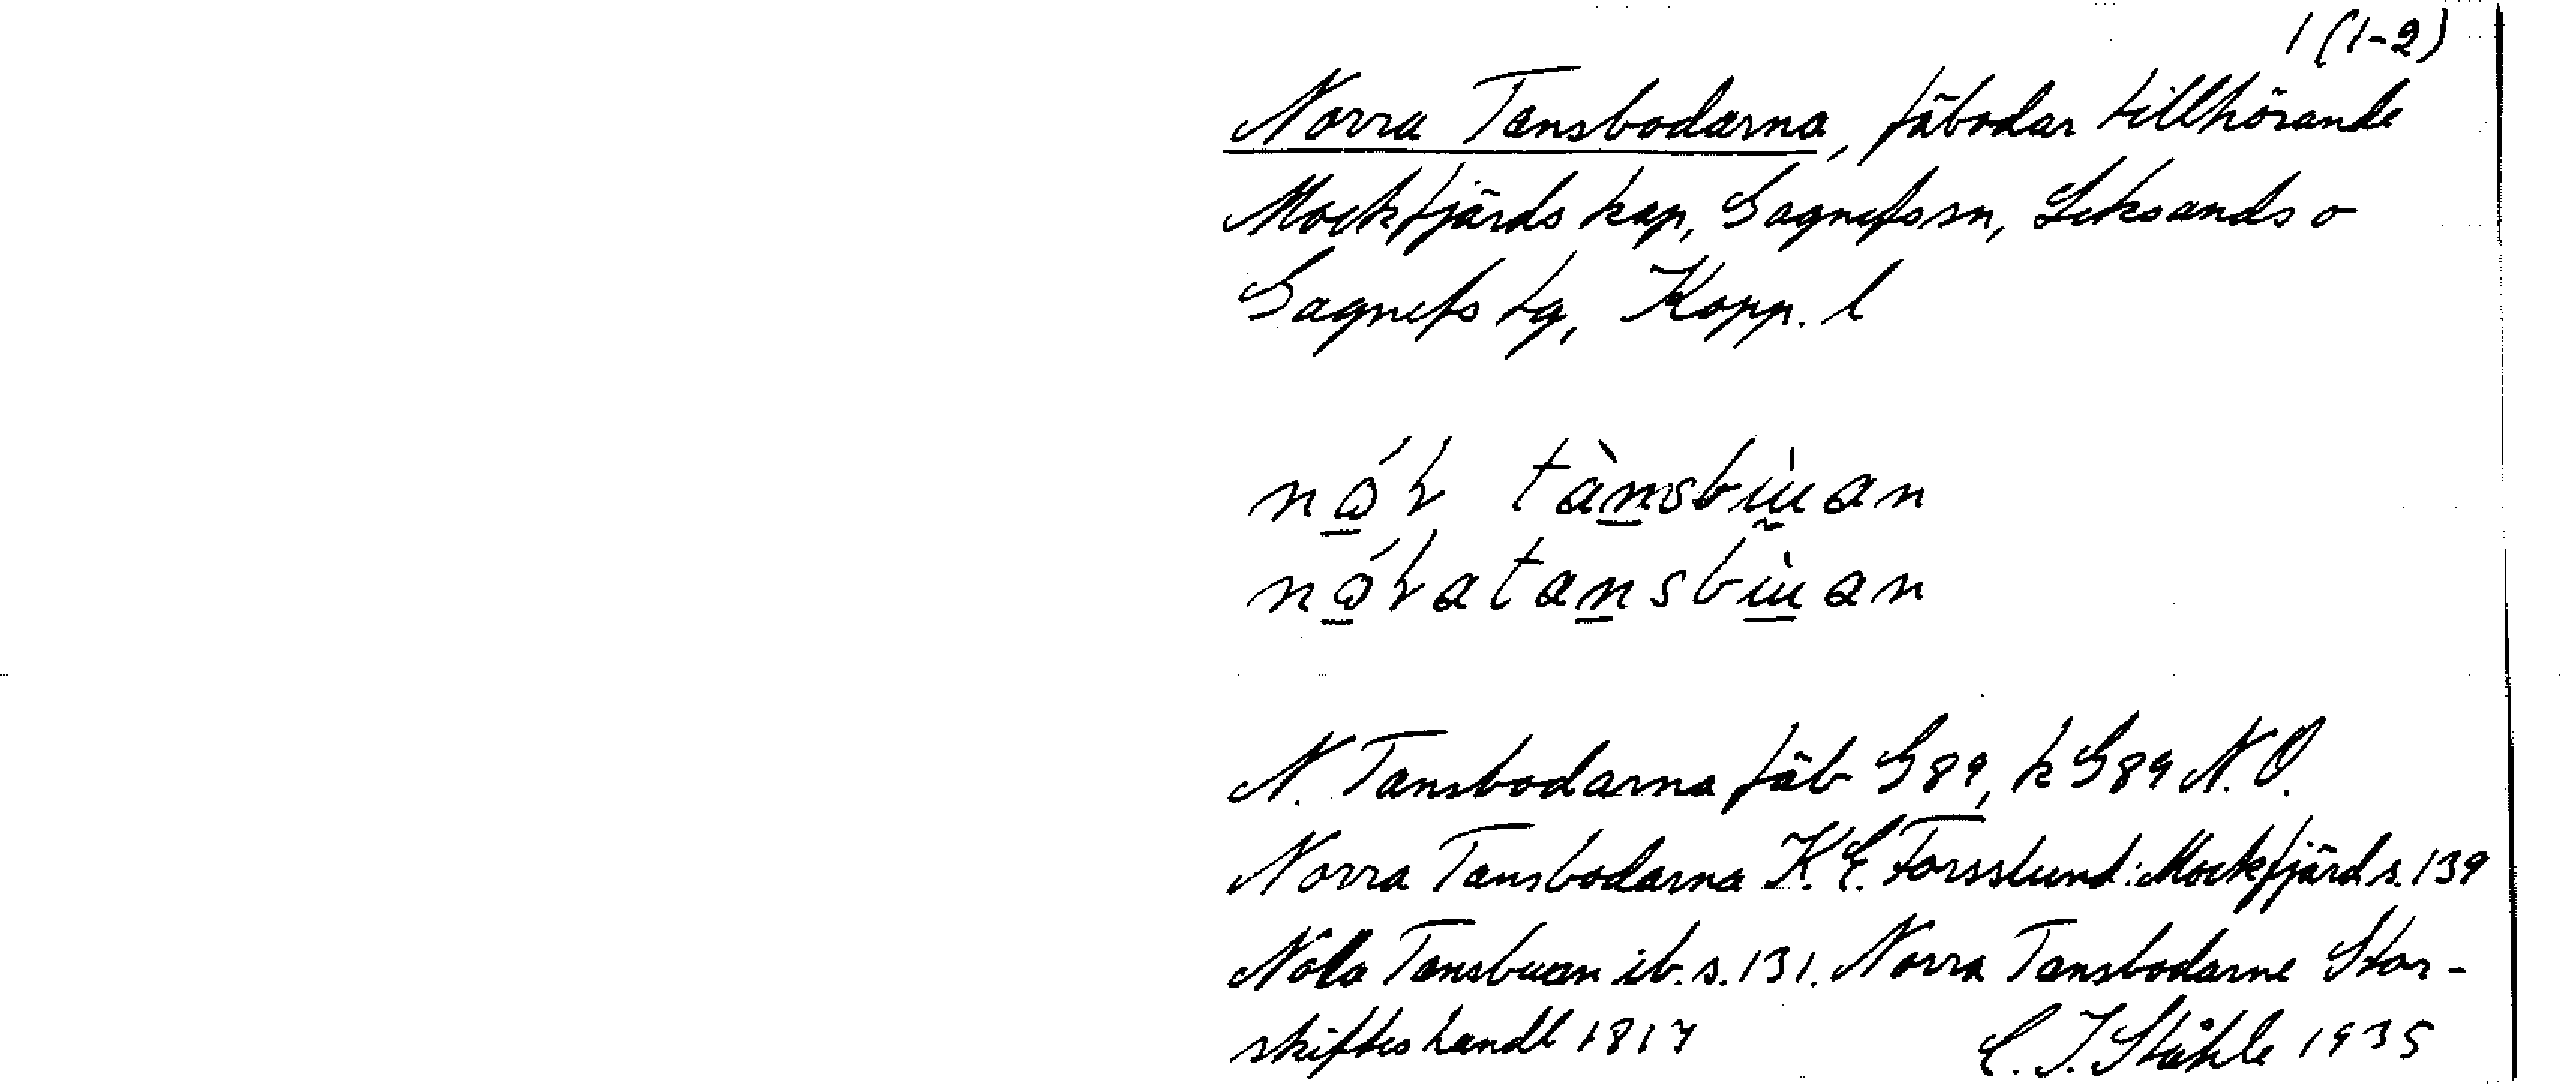 1 (1-2)
Norra Tansbodarna, fäbodar tillhörande
Mockfjärds kap, Gagnefs sn, Leksands o
Gagnefs tg, Kopp. l
N. Tansbodarna fäb G89, k G89 N.O.
Norra Tansbodarna K. E. Forsslund: Mockfjärd s. 139
Nola Tansbuan ib. s. 131. Norra Tansbodarne Stor-
skifteshandl 1817
C. I. Ståhle 1935